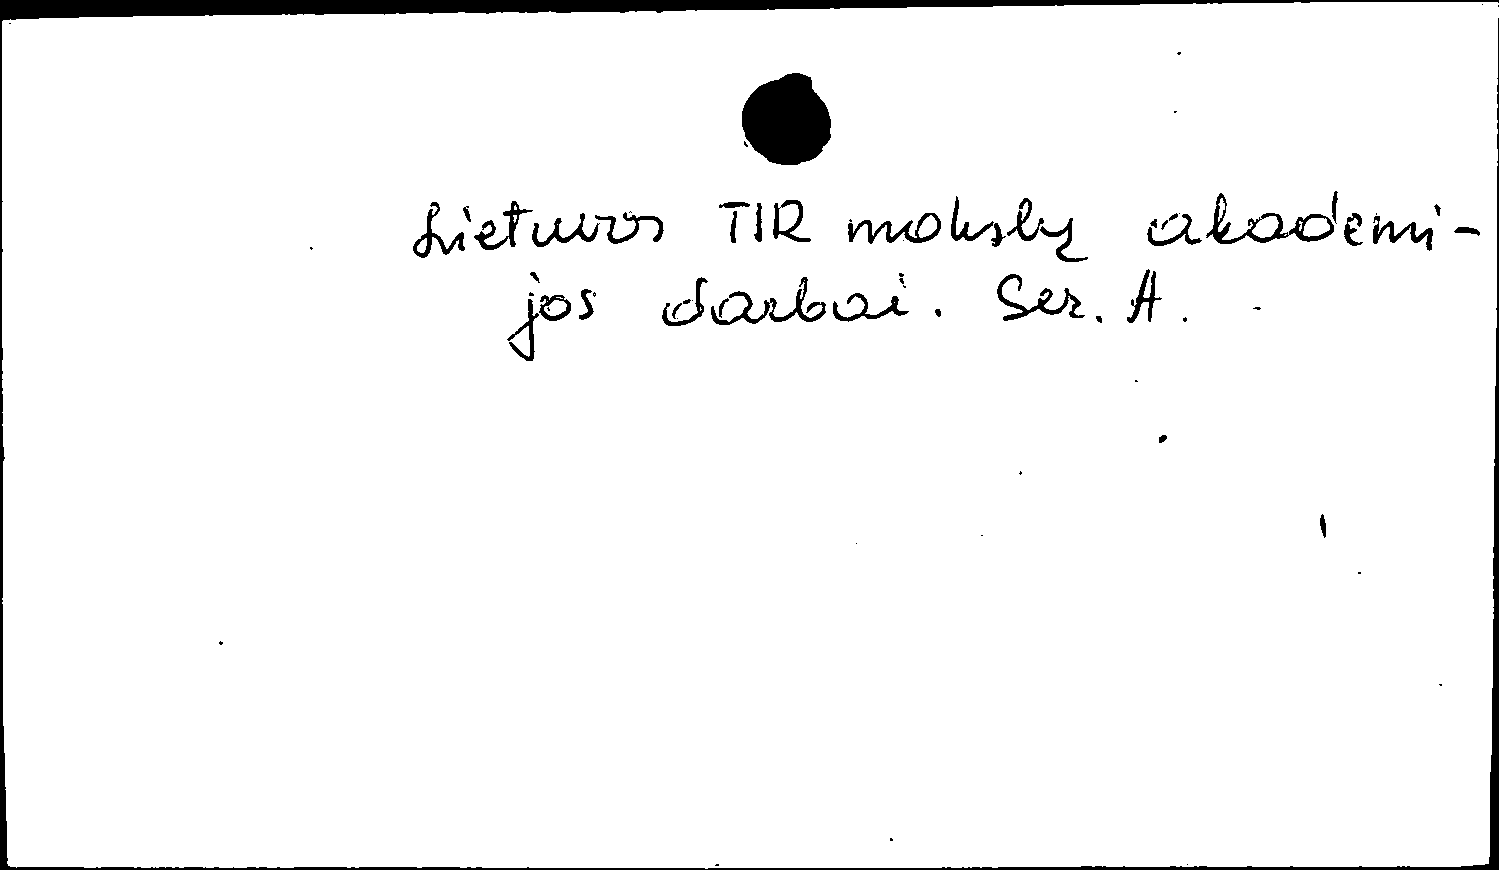 Lietuvos TIR mokslų akademi-
jos darbai. Ser. A.